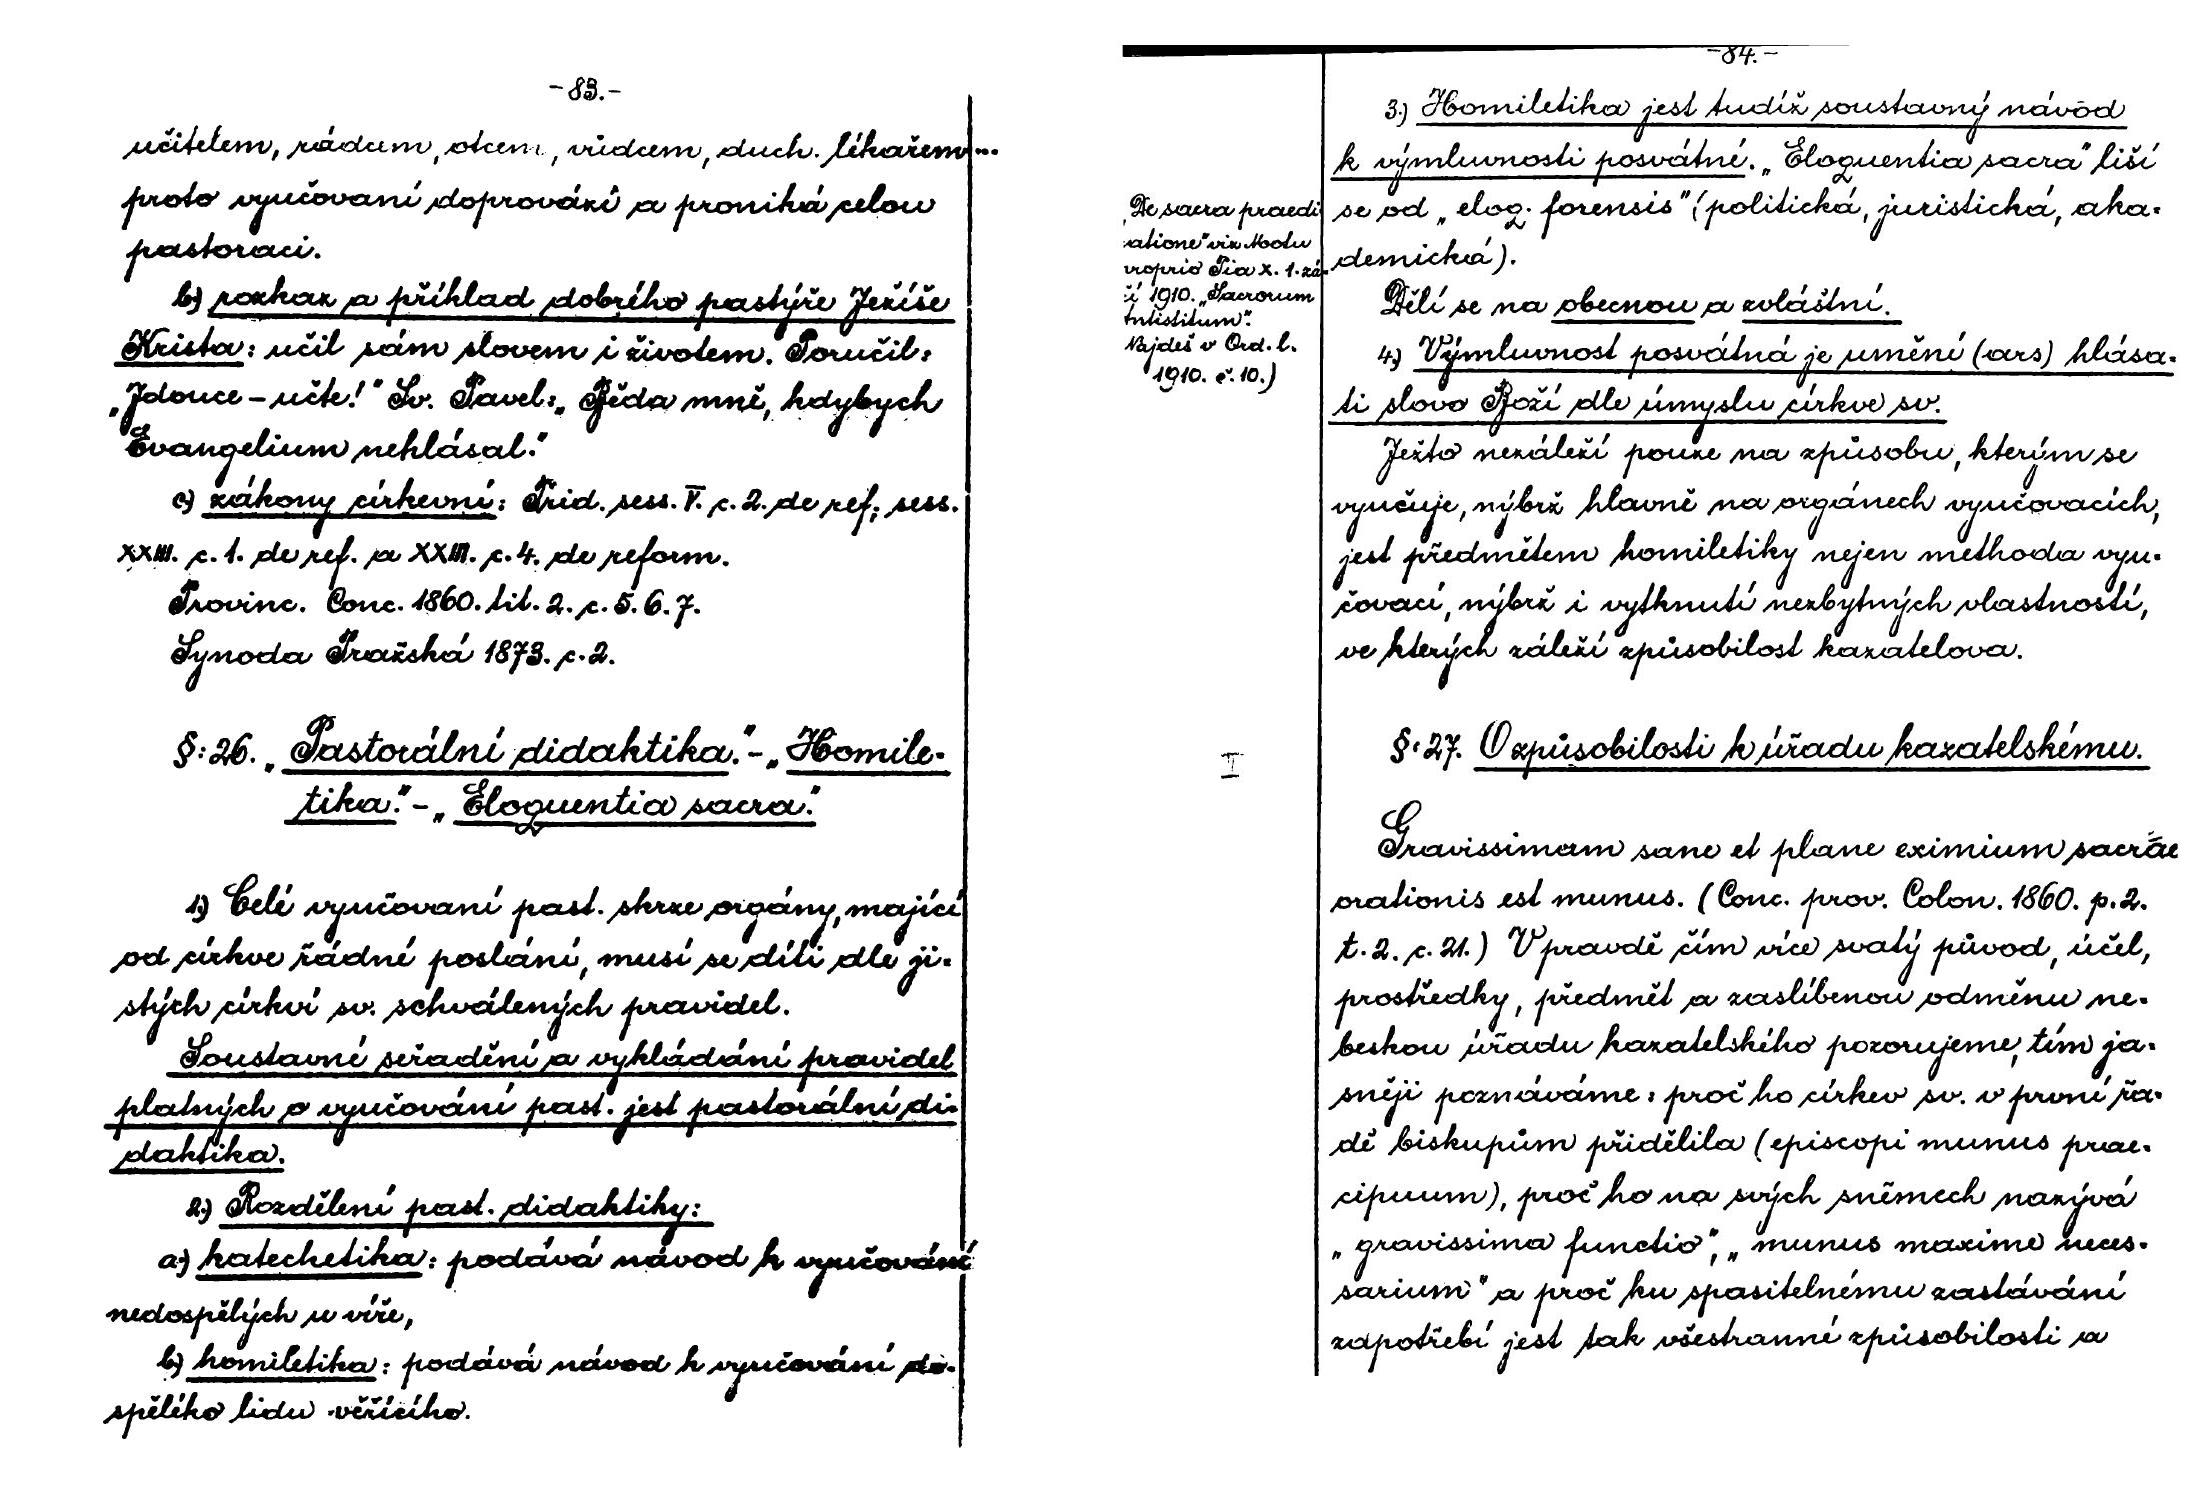 -83.-
učitelem, rádcem, otcem, vůdcem, duch. lékařem...
proto vyučovaní doprovází a proniká celou
pastoraci.
b) rozkaz a příklad dobrého pastýře Ježíše
Krista: učil sám slovem i životem. Poručil:
„Jdouce – učte!" Sv. Pavel: „Běda mně, kdybych
Evangelium nehlásal."
c) zákony církevní: Trid. sess. V. c. 2. de ref; sess.
XXIII. c. 1. de ref. a XXIII. c. 4. de reform.
Provinc. Conc. 1860. tit. 2. c. 5. 6. 7.
Synoda Pražská 1873. c. 2.
§: 26. „Pastorální didaktika." – „Homile-
tika." – „Eloquentia sacra."
1.) Celé vyučovaní past. skrze orgány, mající
od církve řádné poslání, musí se díti dle ji-
stých církví sv. schválených pravidel.
Soustavné seřadění a vykládání pravidel
platných o vyučování past. jest pastorální di-
daktika.
2.) Rozdělení past. didaktiky:
a) katechetika: podává návod k vyučování
nedospělých u víře,
b) homiletika: podává návod k vyučování do-
spělého lidu věřícího.
-84.-
3.) Homiletika jest tudíž soustavný návod
k výmluvnosti posvátné. „Eloquentia sacra" liší
se od „eloq. forensis" (politická, juristická, aka-
demická).
Dělí se na obecnou a zvláštní.
4.) Výmluvnost posvátná je umění (ars) hlása-
ti slovo Boží dle úmyslu církve sv.
Ježto nezáleží pouze na způsobu, kterým se
vyučuje, nýbrž hlavně na orgánech vyučovacích,
jest předmětem homiletiky nejen methoda vyu-
čovací, nýbrž i vytknutí nezbytných vlastností,
ve kterých záleží způsobilost kazatelova.
„De sacra praedi
catione" viz Motu
proprio Pia X. 1. zá-
ří 1910. „Sacrorum
Antistitum".
Najdeš v Ord. l.
1910. č. 10.)
I
§: 27. O způsobilosti k úřadu kazatelskému.
Gravissimam sane et plane eximium sacrae
orationis est munus. (Conc. prov. Colon. 1860. p. 2.
t. 2. c. 21.) V pravdě čím více svatý původ, účel,
prostředky, předmět a zaslíbenou odměnu ne-
beskou úřadu kazatelského pozorujeme, tím ja-
sněji poznáváme: proč ho církev sv. v první řa-
dě biskupům přidělila (episcopi munus prae-
cipuum), proč ho na svých sněmech nazývá
„gravissima functio", „munus maxime neces-
sarium" a proč ku spasitelnému zastávání
zapotřebí jest tak všestranné způsobilosti a